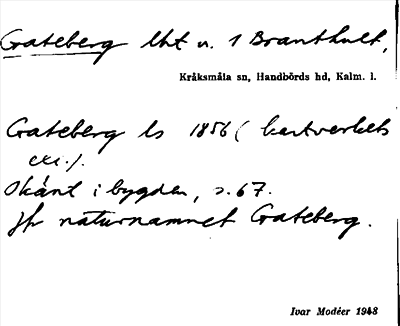 Grateberg lht u. 1 Branthult,
Kråksmåla sn, Handbörds hd, Kalm. l.
Grateberg ls 1856 (kartverkets
ex.).
Okänt i bygden, s. 67.
Jfr naturnamnet Grateberg.
Ivar Modéer 1948